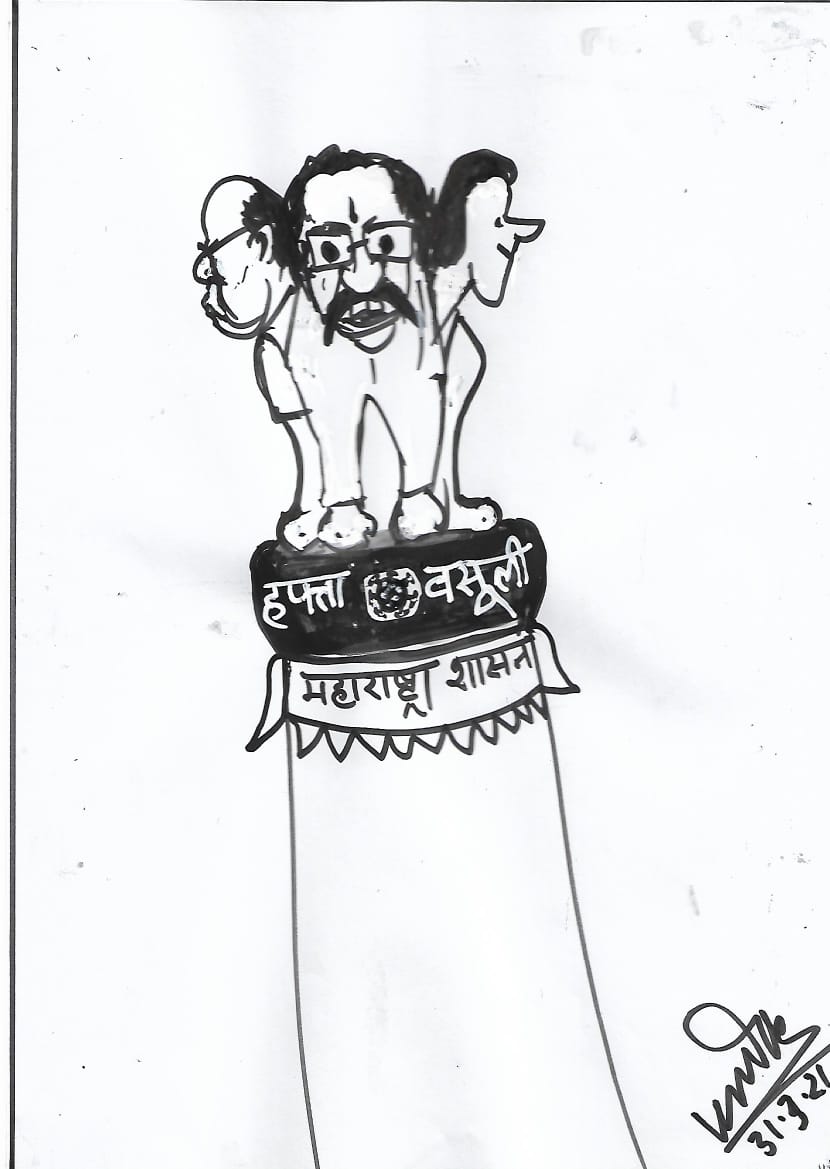 हफ्ता वसूली
महाराष्ट्रा शासन
31.3.21